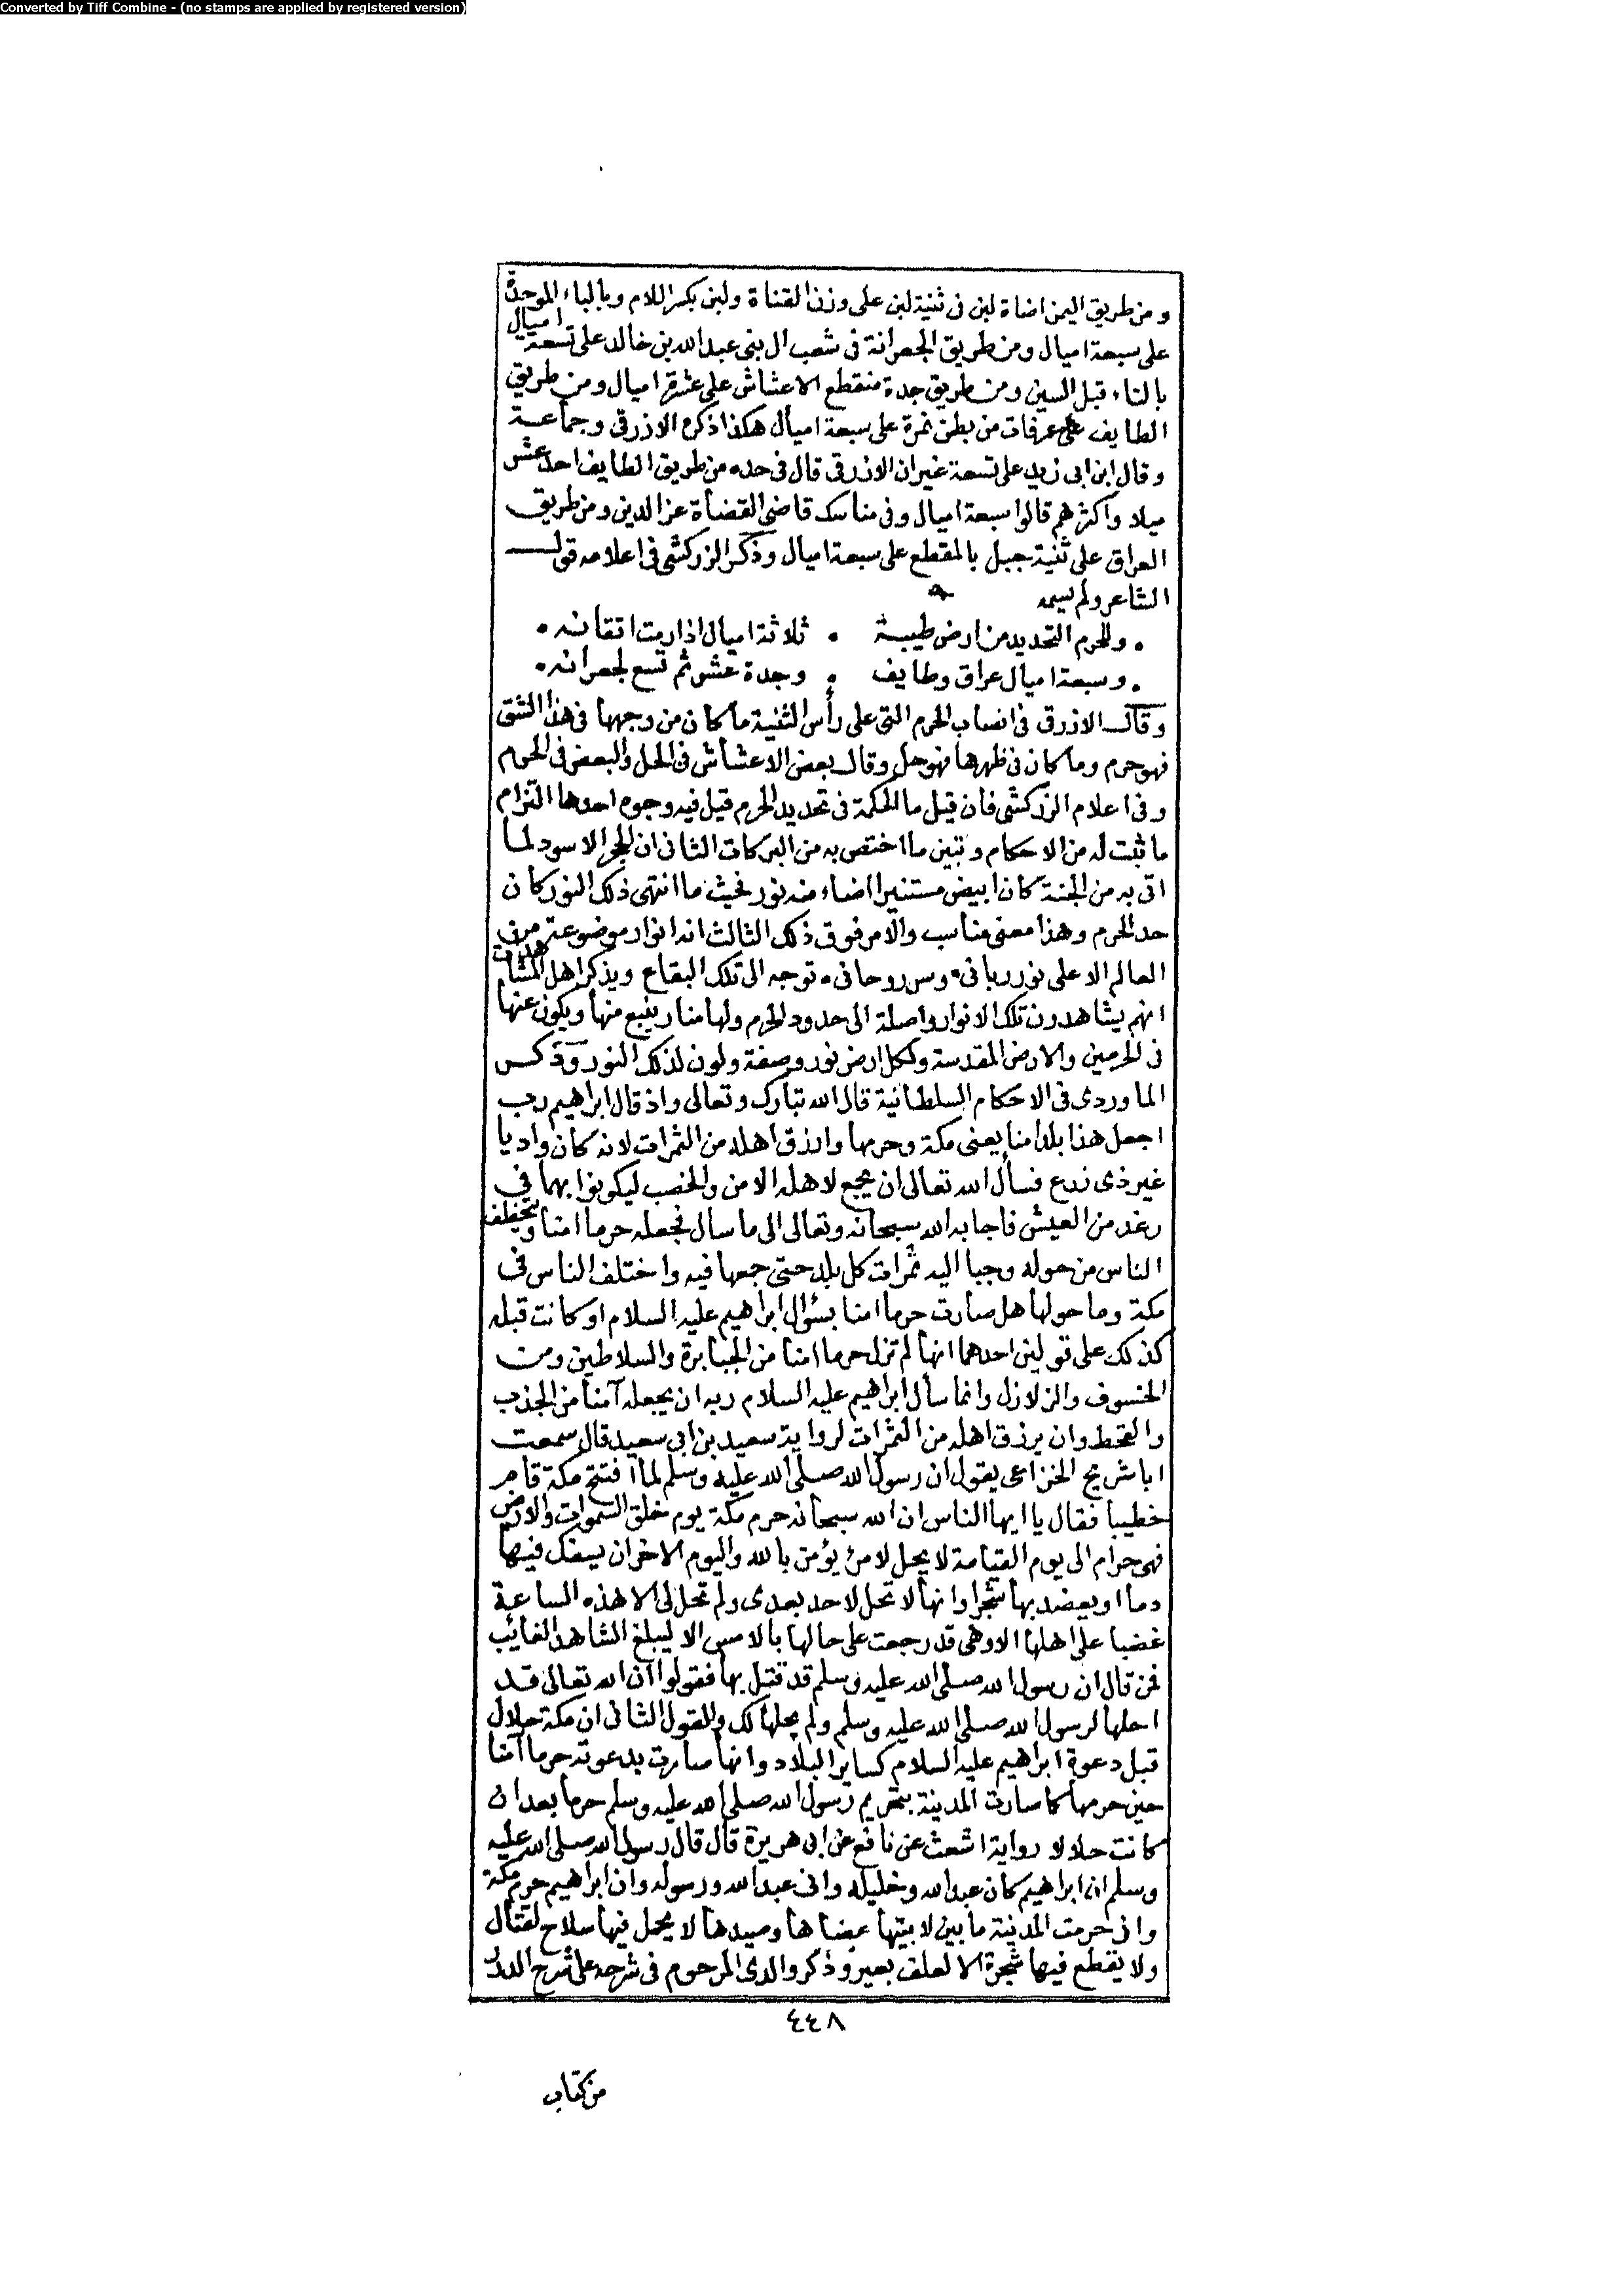 Converted by Tiff Combine - (no stamps are applied by registered version)
ومن طريق اليمن اضاة لبن فى ثنية لبن على وزن القناة ولبن بكسر اللام وبالباء الموحدة
على سبعة اميال ومن طريق الجعرانة فى شعب ال بنى عبد الله بن خالد على تسعة اميال
بالتاء قبل السين ومن طريق جدة منقطع الاعشاش على عشرة اميال ومن طريق
الطايف على عرفات من بطن نمرة على سبعة اميال هكذا ذكره الازرقى وجماعة
وقال ابن ابى زيد على تسعة غير ان الازرقى قال فى حده من طريق الطايف احد عشر
ميلا واكثرهم قالوا سبعة اميال وفى مناسك قاضى القضاة عز الدين ومن طريق
العراق على ثنية جبل بالمقطع على سبعة اميال وذكر الزركشى فى اعلامه قول
الشاعر ولم يسمه
وللحرم التحديد من ارض طيبة . ثلاثة اميال اذا رمت اتقانه .
وسبعة اميال عراق وطايف . وجدة عشر ثم تسع لجعرانه .
وقال الازرقى فى انصاب الحرم التى على رأس الثنية ما كان من وجهها فى هذا الشق
فهو حرم وما كان فى ظهرها فهو حل وقال بعض الاعشاش فى الحل والبعض فى الحرم
وفى اعلام الزركشى فان قيل ما الحكمة فى تحديد الحرم قيل فيه وجوه احدها التزام
ما ثبت له من الاحكام وتبين ما اختص به من البركات الثانى ان الحجر الاسود لما
اتى به من الجنة كان ابيض مستنيرا اضاء منه نور فحيث ما انتهى ذلك النور كان
حد الحرم وهذا معنى مناسب والامر فوق ذلك الثالث انه انوار موضوعة من
العالم الاعلى نور ربانى وسر روحانى توجه الى تلك البقاع ويذكر اهل المشاهدات
انهم يشاهدون تلك الانوار واصلة الى حدود الحرم ولها منار ينبع منها ويكون عنها
فى الحرمين والارض المقدسة ولكل ارض نور وصفة ولون لذلك النور وذكر
الماوردى فى الاحكام السلطانية قال الله تبارك وتعالى واذ قال ابراهيم رب
اجعل هذا بلدا امنا يعنى مكة وحرمها وارزق اهله من الثمرات لانه كان واديا
غير ذى زرع فسأل الله تعالى ان يجمع لاهله الامن والخصب ليكونوا بهما فى
رغد من العيش فاجابه الله سبحانه وتعالى الى ما سال فجعله حرما امنا ويتخطف
الناس من حوله وجبا اليه ثمرات كل بلد حتى جمعها فيه واختلف الناس فى
مكة وما حولها هل صارت حرما امنا بسؤال ابراهيم عليه السلام او كانت قبله
كذلك على قولين احدهما انها لم تزل حرما امنا من الجبابرة والسلاطين ومن
الخسوف والزلازل وانما سأل ابراهيم عليه السلام ربه ان يجعله آمنا من الجذب
والقحط وان يرزق اهله من الثمرات لرواية سعيد بن ابى سعيد قال سمعت
ابا شريح الخزاعى يقول ان رسول الله صلى الله عليه وسلم لما افتتح مكة قام
خطيبا فقال يا ايها الناس ان الله سبحانه حرم مكة يوم خلق السموات والارض
فهى حرام الى يوم القيامة لا يحل لامرئ يؤمن بالله واليوم الاخر ان يسفك فيها
دما او يعضد بها شجرا وانها لا تحل لاحد بعدى ولم تحل لى الا هذه الساعة
غضبا على اهلها الا وهى قد رجعت على حالها بالامس الا ليبلغ الشاهد الغائب
فمن قال ان رسول الله صلى الله عليه وسلم قد قتل بها فقولوا ان الله تعالى قد
احلها لرسول الله صلى الله عليه وسلم ولم يحلها لك والقول الثانى ان مكة حلال
قبل دعوة ابراهيم عليه السلام كساير البلاد وانها صارت بدعوته حرما آمنا
حين حرمها كما سارت المدينة بتحريم رسول الله صلى الله عليه وسلم حرما بعد ان
كانت حلالا رواية اشعث عن نافع عن ابى هريرة قال قال رسول الله صلى الله عليه
وسلم ان ابراهيم كان عبد الله وخليله وانى عبد الله ورسوله وان ابراهيم حرم مكة
وانى حرمت المدينة ما بين لابتيها عضاها وصيدها لا يحمل فيها سلاح لقتال
ولا يقطع فيها شجرة الا لعلف بعير وذكر والدى المرحوم فى شرحه على شرح الدرر
٤٤٨
من كتاب